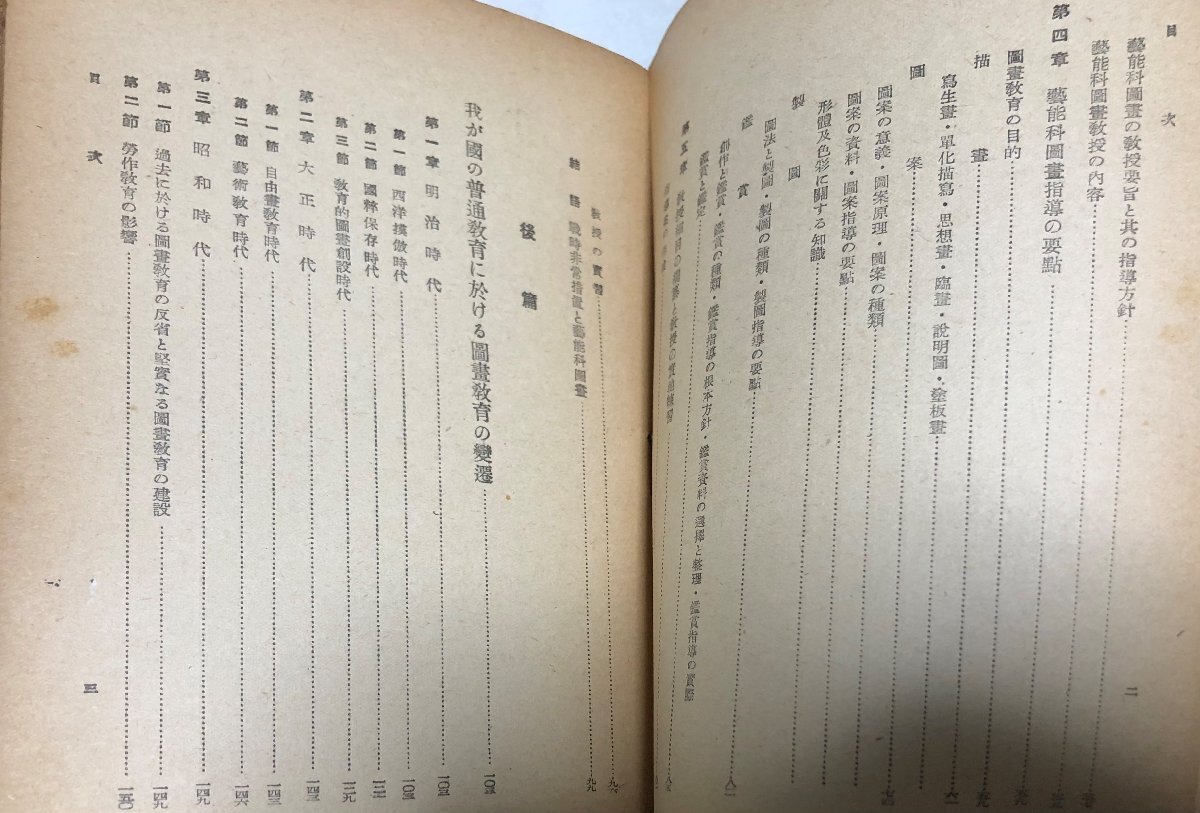 目次
二
藝能科圖畫の教授要旨と其の指導方針
藝能科圖畫教授の內容
第四章 藝能科圖畫指導の要點
圖畫教育の目的
描畫
寫生畫・單化描寫・思想畫・臨畫・說明圖・塗板畫
圖案
圖案の意義・圖案原理・圖案の種類
圖案の資料・圖案指導の要點
形體及色彩に關する知識
製圖
圖法と製圖・製圖の種類・製圖指導の要點
鑑賞
創作と鑑賞・鑑賞の種類・鑑賞指導の根本方針・鑑賞資料の選擇と整理・鑑賞指導の實際
鑑賞と鑑定
第五章
教授の實習 九六
結語 戰時非常措置と藝能科圖畫 九九
後篇
我が國の普通教育に於ける圖畫教育の變遷 一〇三
第一章 明治時代 一〇三
第一節 西洋摸倣時代 一〇三
第二節 國粹保存時代
第三節 教育的圖畫創設時代 一二九
第二章 大正時代 一四三
第一節 自由畫教育時代 一四三
第二節 藝術教育時代 一四六
第三章 昭和時代 一四九
第一節 過去に於ける圖畫教育の反省と堅實なる圖畫教育の建設 一四九
第二節 勞作教育の影響 一五〇
目次
三